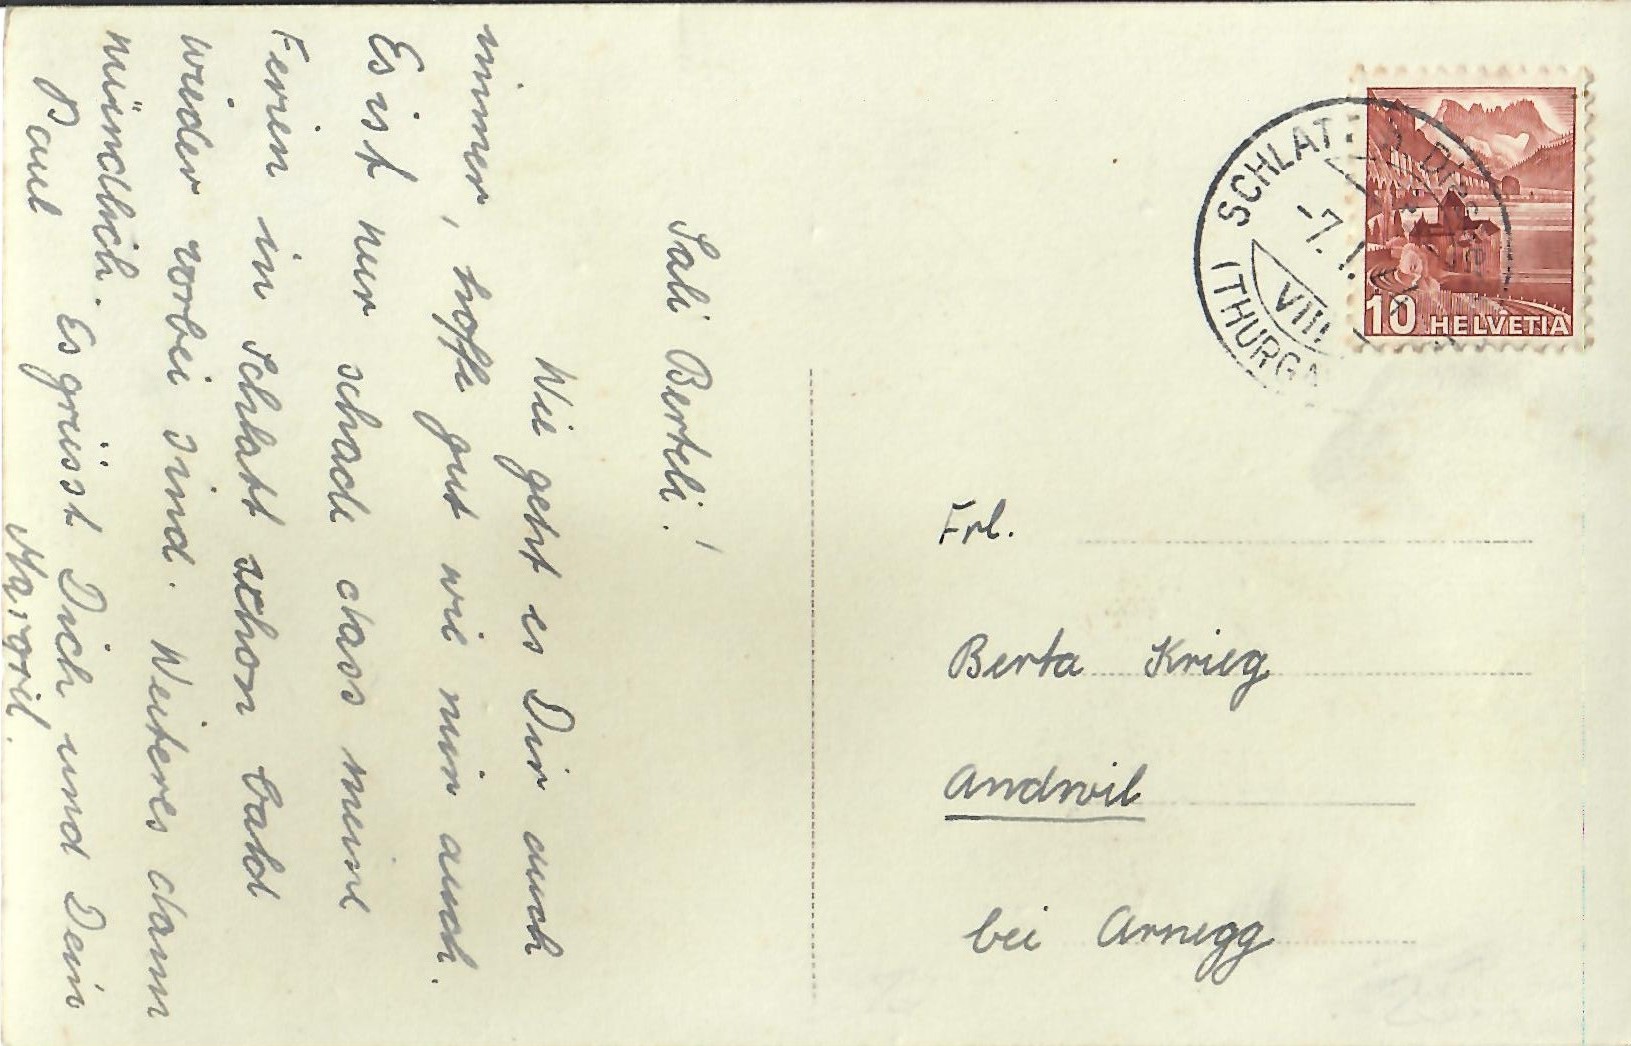 Sali Berteli!
Wie geht es Dir auch
immer, hoffe gut wie mir auch.
Es ist nur schade dass meine
Ferien in Schlatt schon bald
wieder vorbei sind. Weiteres dann
mündlich. Es grüsst Dich und Dein
Paul
SCHLATT
-7.I.
VIII
(THURGA
10 HELVETIA
Frl.
Berta Krieg
Andwil
bei Arnegg